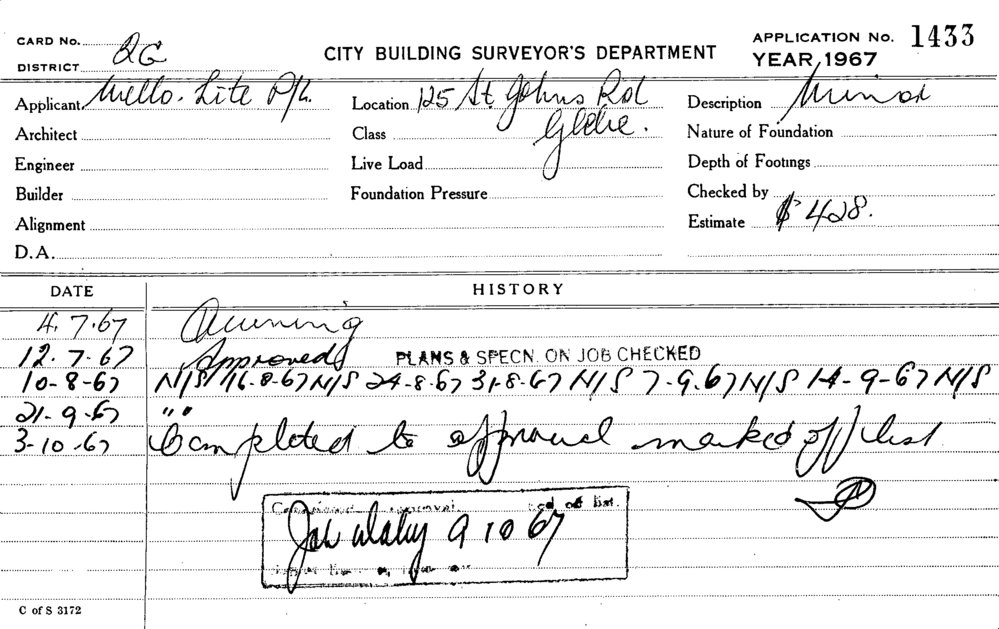 CARD No.
DISTRICT QG
CITY BUILDING SURVEYOR'S DEPARTMENT
APPLICATION No. 1433
YEAR, 1967
Applicant Miello. Lite P/L. Location 125 St. Johns Rd Description Minor
Architect Class Glebe. Nature of Foundation
Engineer Live Load Depth of Footings
Builder Foundation Pressure Checked by
Alignment Estimate $428.
D.A.
DATE HISTORY
4.7.67 Awning
12.7.67 Approved PLANS & SPECN. ON JOB CHECKED
10-8-67 N/S 16-8-67 N/S 24-8-67 31-8-67 N/S 7-9.67 N/S 14-9-67 N/S
21-9-67 " "
3-10-67 Completed to approval marked off list
approval off list.
9 10 67
C of S 3172